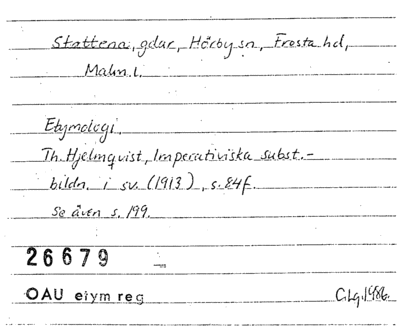 Stattena, gdar, Hörby sn, Frosta hd,
Malm. l.
Etymologi.
Th. Hjelmqvist, Imperativiska subst.-
bildn. i sv. (1913), s. 84f.
Se även s. 199.
26679
OAU etym reg
C.Lg. 1986.